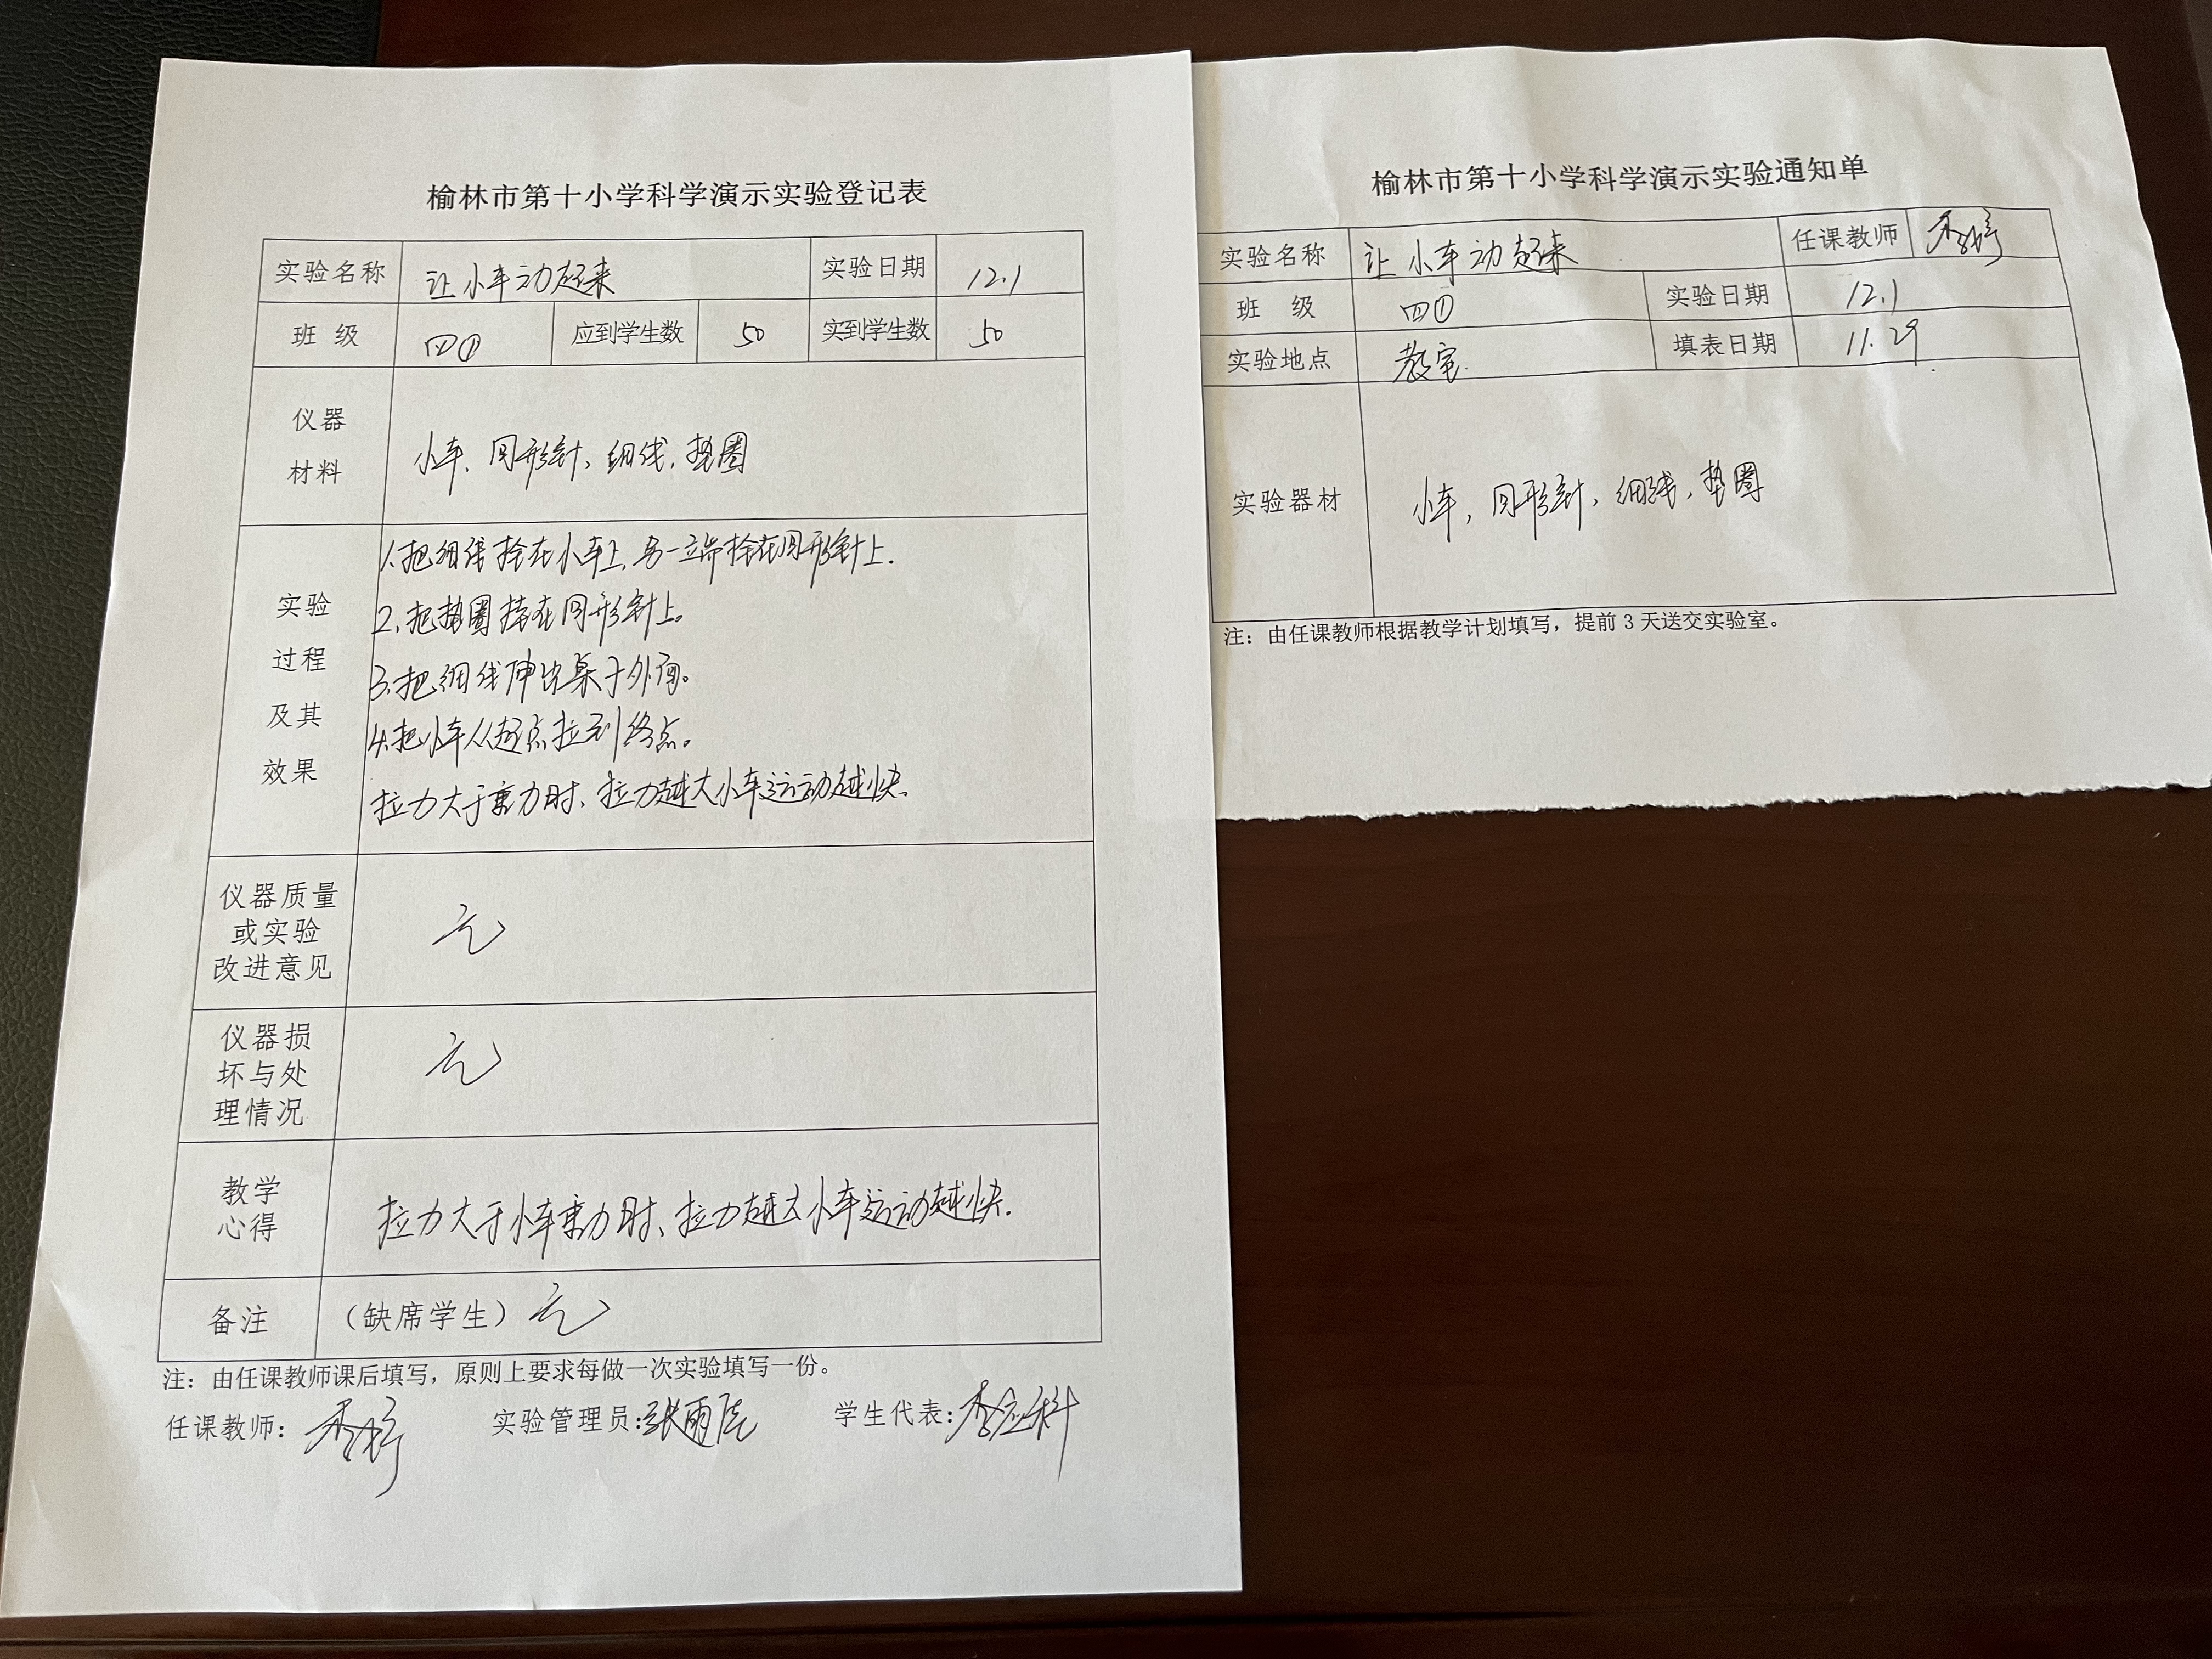 榆林市第十小学科学演示实验登记表
实验名称 让小车动起来 实验日期 12.1
班 级 四① 应到学生数 50 实到学生数 50
仪器
材料
小车、回形针、细线、垫圈
实验
过程
及其
效果
1.把细线拴在小车上,另一端拴在回形针上.
2.把垫圈挂在回形针上。
3.把细线伸出桌子外面。
4.把小车从起点拉到终点。
拉力大于重力时、拉力越大小车运动越快.
仪器质量
或实验
改进意见
无
仪器损
坏与处
理情况
无
教学
心得
拉力大于小车重力时、拉力越大小车运动越快.
备注 (缺席学生) 无
注:由任课教师课后填写,原则上要求每做一次实验填写一份。
任课教师: 实验管理员:张雨 学生代表:李应科
榆林市第十小学科学演示实验通知单
实验名称 让小车动起来 任课教师
班 级 四① 实验日期 12.1
实验地点 教室. 填表日期 11.29
实验器材 小车,回形针,细线,垫圈
注:由任课教师根据教学计划填写,提前 3 天送交实验室。